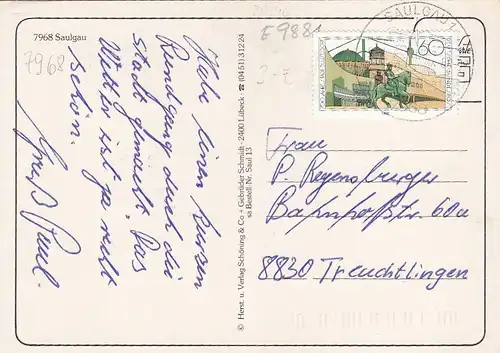 7968 Saulgau
7968
Habe einen kurzen
Rundgang durch die
Stadt gemacht. Das
Wetter ist ja recht
schön.
Gruß Paul.
© Herst. u. Verlag Schöning & Co + Gebrüder Schmidt · 2400 Lübeck · ☎ (04 51) 3 12 24
sa Bestell Nr. Saul 13
E 9881
SAULGAU 1
60
Frau
P. Regensburger
Bahnhofstr. 60a
8830 Treuchtlingen